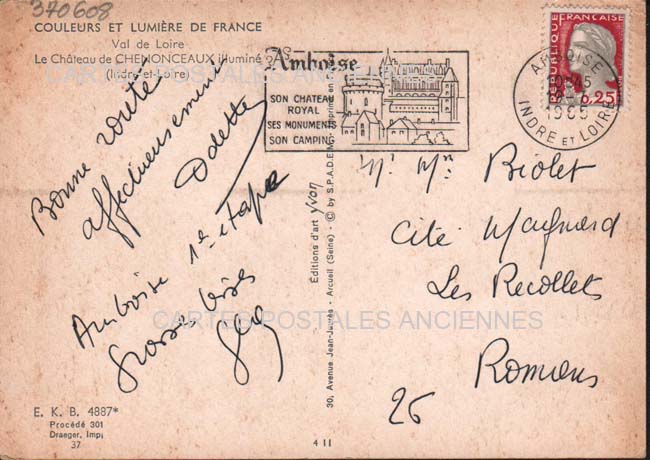 370608
COULEURS ET LUMIÈRE DE FRANCE
Val de Loire
Le Château de CHENONCEAUX illuminé
(Indre-et-Loire)
CARTES POSTALES ANCIENNES
Amboise
SON CHATEAU
ROYAL
SES MONUMENTS
SON CAMPING
REPUBLIQUE FRANÇAISE
0,25
AMBOISE
1965
INDRE ET LOIRE
Bonne santé
affectueusement
Odette
Amboise 1e étape
Grosses bises
Mr Mme Biolet
Cité Maynard
Les Recollets
Romans
26
Editions d'art yvon - © by S.P.A.D.E.M.
30, Avenue Jean-Jaurès - Arcueil (Seine)
CARTES POSTALES ANCIENNES
E. K. B. 4887*
Procédé 301
Draeger, Imp.
37
4 11